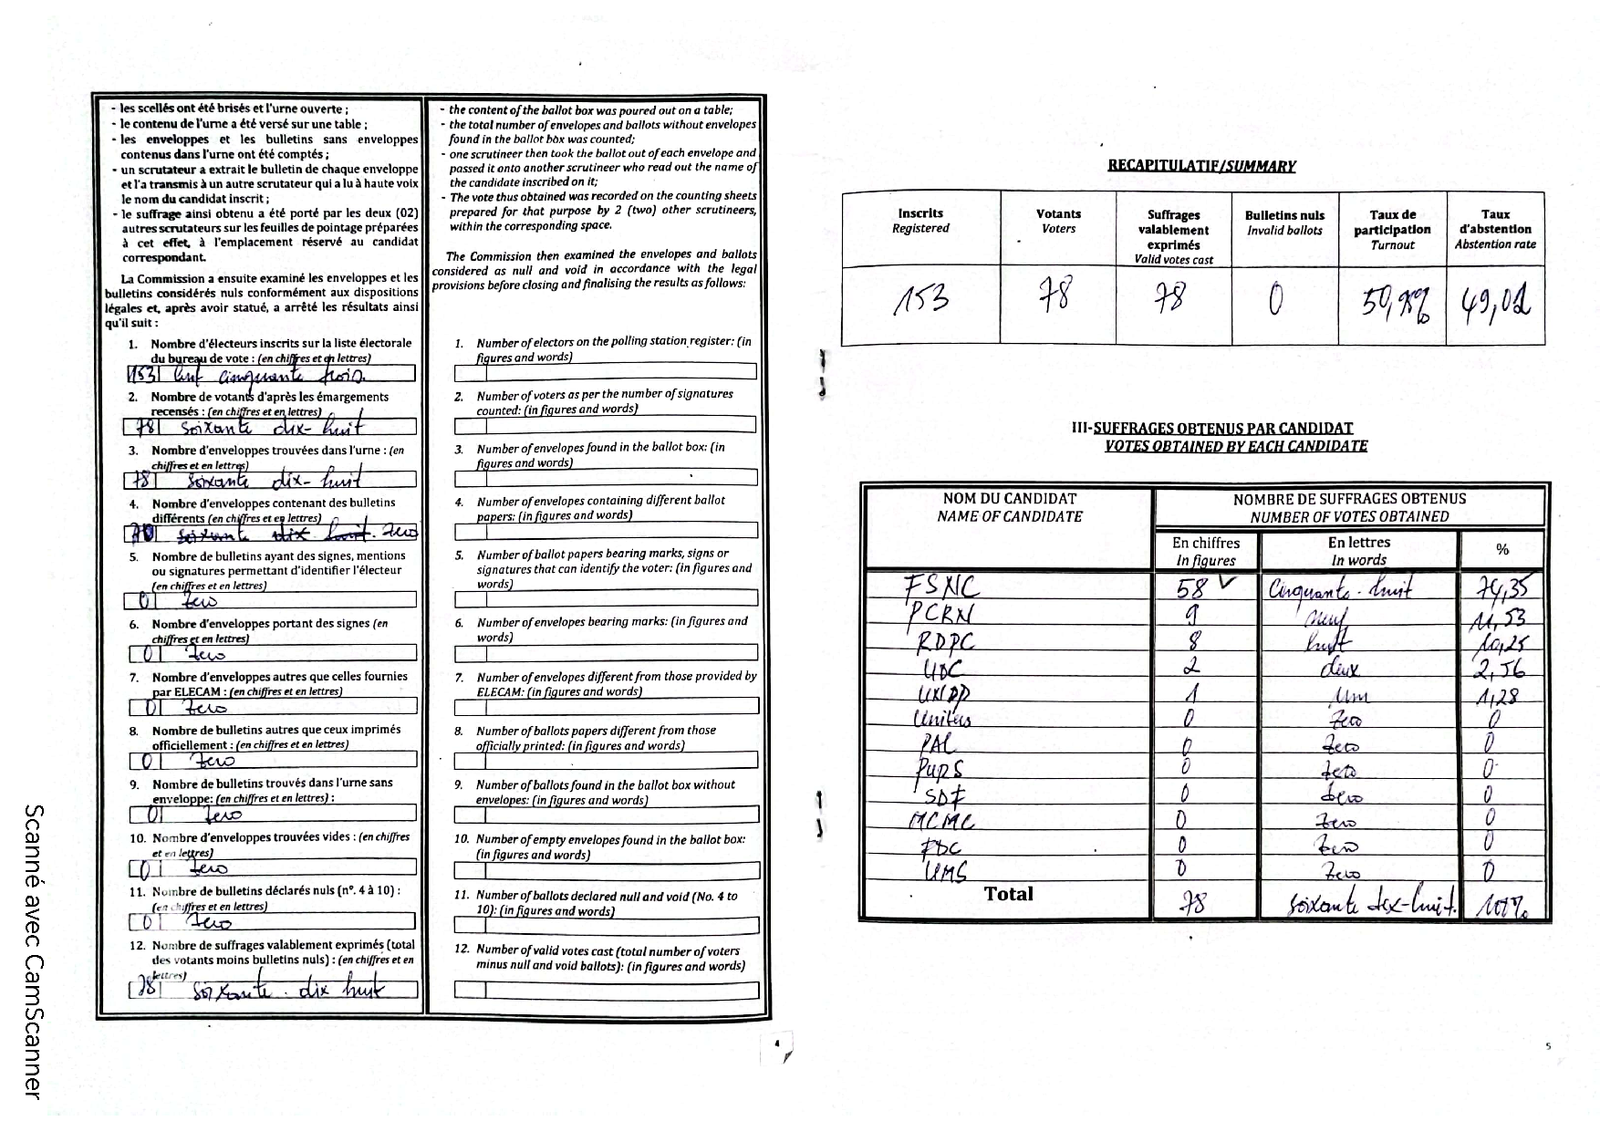 - les scellés ont été brisés et l'urne ouverte ;
- le contenu de l'urne a été versé sur une table ;
- les enveloppes et les bulletins sans enveloppes
contenus dans l'urne ont été comptés ;
- un scrutateur a extrait le bulletin de chaque enveloppe
et l'a transmis à un autre scrutateur qui a lu à haute voix
le nom du candidat inscrit ;
- le suffrage ainsi obtenu a été porté par les deux (02)
autres scrutateurs sur les feuilles de pointage préparées
à cet effet, à l'emplacement réservé au candidat
correspondant.
La Commission a ensuite examiné les enveloppes et les
bulletins considérés nuls conformément aux dispositions
légales et, après avoir statué, a arrêté les résultats ainsi
qu'il suit :
1. Nombre d'électeurs inscrits sur la liste électorale
du bureau de vote : (en chiffres et en lettres)
153 cent cinquante trois
2. Nombre de votants d'après les émargements
recensés : (en chiffres et en lettres)
78 soixante dix-huit
3. Nombre d'enveloppes trouvées dans l'urne : (en
chiffres et en lettres)
78 soixante dix-huit
4. Nombre d'enveloppes contenant des bulletins
différents (en chiffres et en lettres)
0 soixante dix huit. zero
5. Nombre de bulletins ayant des signes, mentions
ou signatures permettant d'identifier l'électeur
(en chiffres et en lettres)
0 zero
6. Nombre d'enveloppes portant des signes (en
chiffres et en lettres)
0 zero
7. Nombre d'enveloppes autres que celles fournies
par ELECAM : (en chiffres et en lettres)
0 zero
8. Nombre de bulletins autres que ceux imprimés
officiellement : (en chiffres et en lettres)
0 zero
9. Nombre de bulletins trouvés dans l'urne sans
enveloppe: (en chiffres et en lettres) :
0 zero
10. Nombre d'enveloppes trouvées vides : (en chiffres
et en lettres)
0 zero
11. Nombre de bulletins déclarés nuls (n°. 4 à 10) :
(en chiffres et en lettres)
0 zero
12. Nombre de suffrages valablement exprimés (total
des votants moins bulletins nuls) : (en chiffres et en
lettres)
78 soixante dix huit
- the content of the ballot box was poured out on a table;
- the total number of envelopes and ballots without envelopes
found in the ballot box was counted;
- one scrutineer then took the ballot out of each envelope and
passed it onto another scrutineer who read out the name of
the candidate inscribed on it;
- The vote thus obtained was recorded on the counting sheets
prepared for that purpose by 2 (two) other scrutineers,
within the corresponding space.
The Commission then examined the envelopes and ballots
considered as null and void in accordance with the legal
provisions before closing and finalising the results as follows:
1. Number of electors on the polling station register: (in
figures and words)
2. Number of voters as per the number of signatures
counted: (in figures and words)
3. Number of envelopes found in the ballot box: (in
figures and words)
4. Number of envelopes containing different ballot
papers: (in figures and words)
5. Number of ballot papers bearing marks, signs or
signatures that can identify the voter: (in figures and
words)
6. Number of envelopes bearing marks: (in figures and
words)
7. Number of envelopes different from those provided by
ELECAM: (in figures and words)
8. Number of ballots papers different from those
officially printed: (in figures and words)
9. Number of ballots found in the ballot box without
envelopes: (in figures and words)
10. Number of empty envelopes found in the ballot box:
(in figures and words)
11. Number of ballots declared null and void (No. 4 to
10): (in figures and words)
12. Number of valid votes cast (total number of voters
minus null and void ballots): (in figures and words)
4
RECAPITULATIF/SUMMARY
Inscrits Registered
Votants Voters
Suffrages valablement exprimés Valid votes cast
Bulletins nuls Invalid ballots
Taux de participation Turnout
Taux d'abstention Abstention rate
153 78 78 0 50,98% 49,02
III-SUFFRAGES OBTENUS PAR CANDIDAT
VOTES OBTAINED BY EACH CANDIDATE
NOM DU CANDIDAT NOMBRE DE SUFFRAGES OBTENUS
NAME OF CANDIDATE NUMBER OF VOTES OBTAINED
En chiffres En lettres %
In figures In words
FSNC 58 Cinquante-huit 74,35
PCRN 9 neuf 11,53
RDPC 8 huit 10,25
UDC 2 deux 2,56
UNDP 1 un 1,28
Univers 0 zero 0
PAL 0 zero 0
PURS 0 zero 0
SDF 0 zero 0
MCNC 0 zero 0
FDC 0 zero 0
UMS 0 zero 0
Total 78 soixante dix-huit. 100%
5
Scanné avec CamScanner